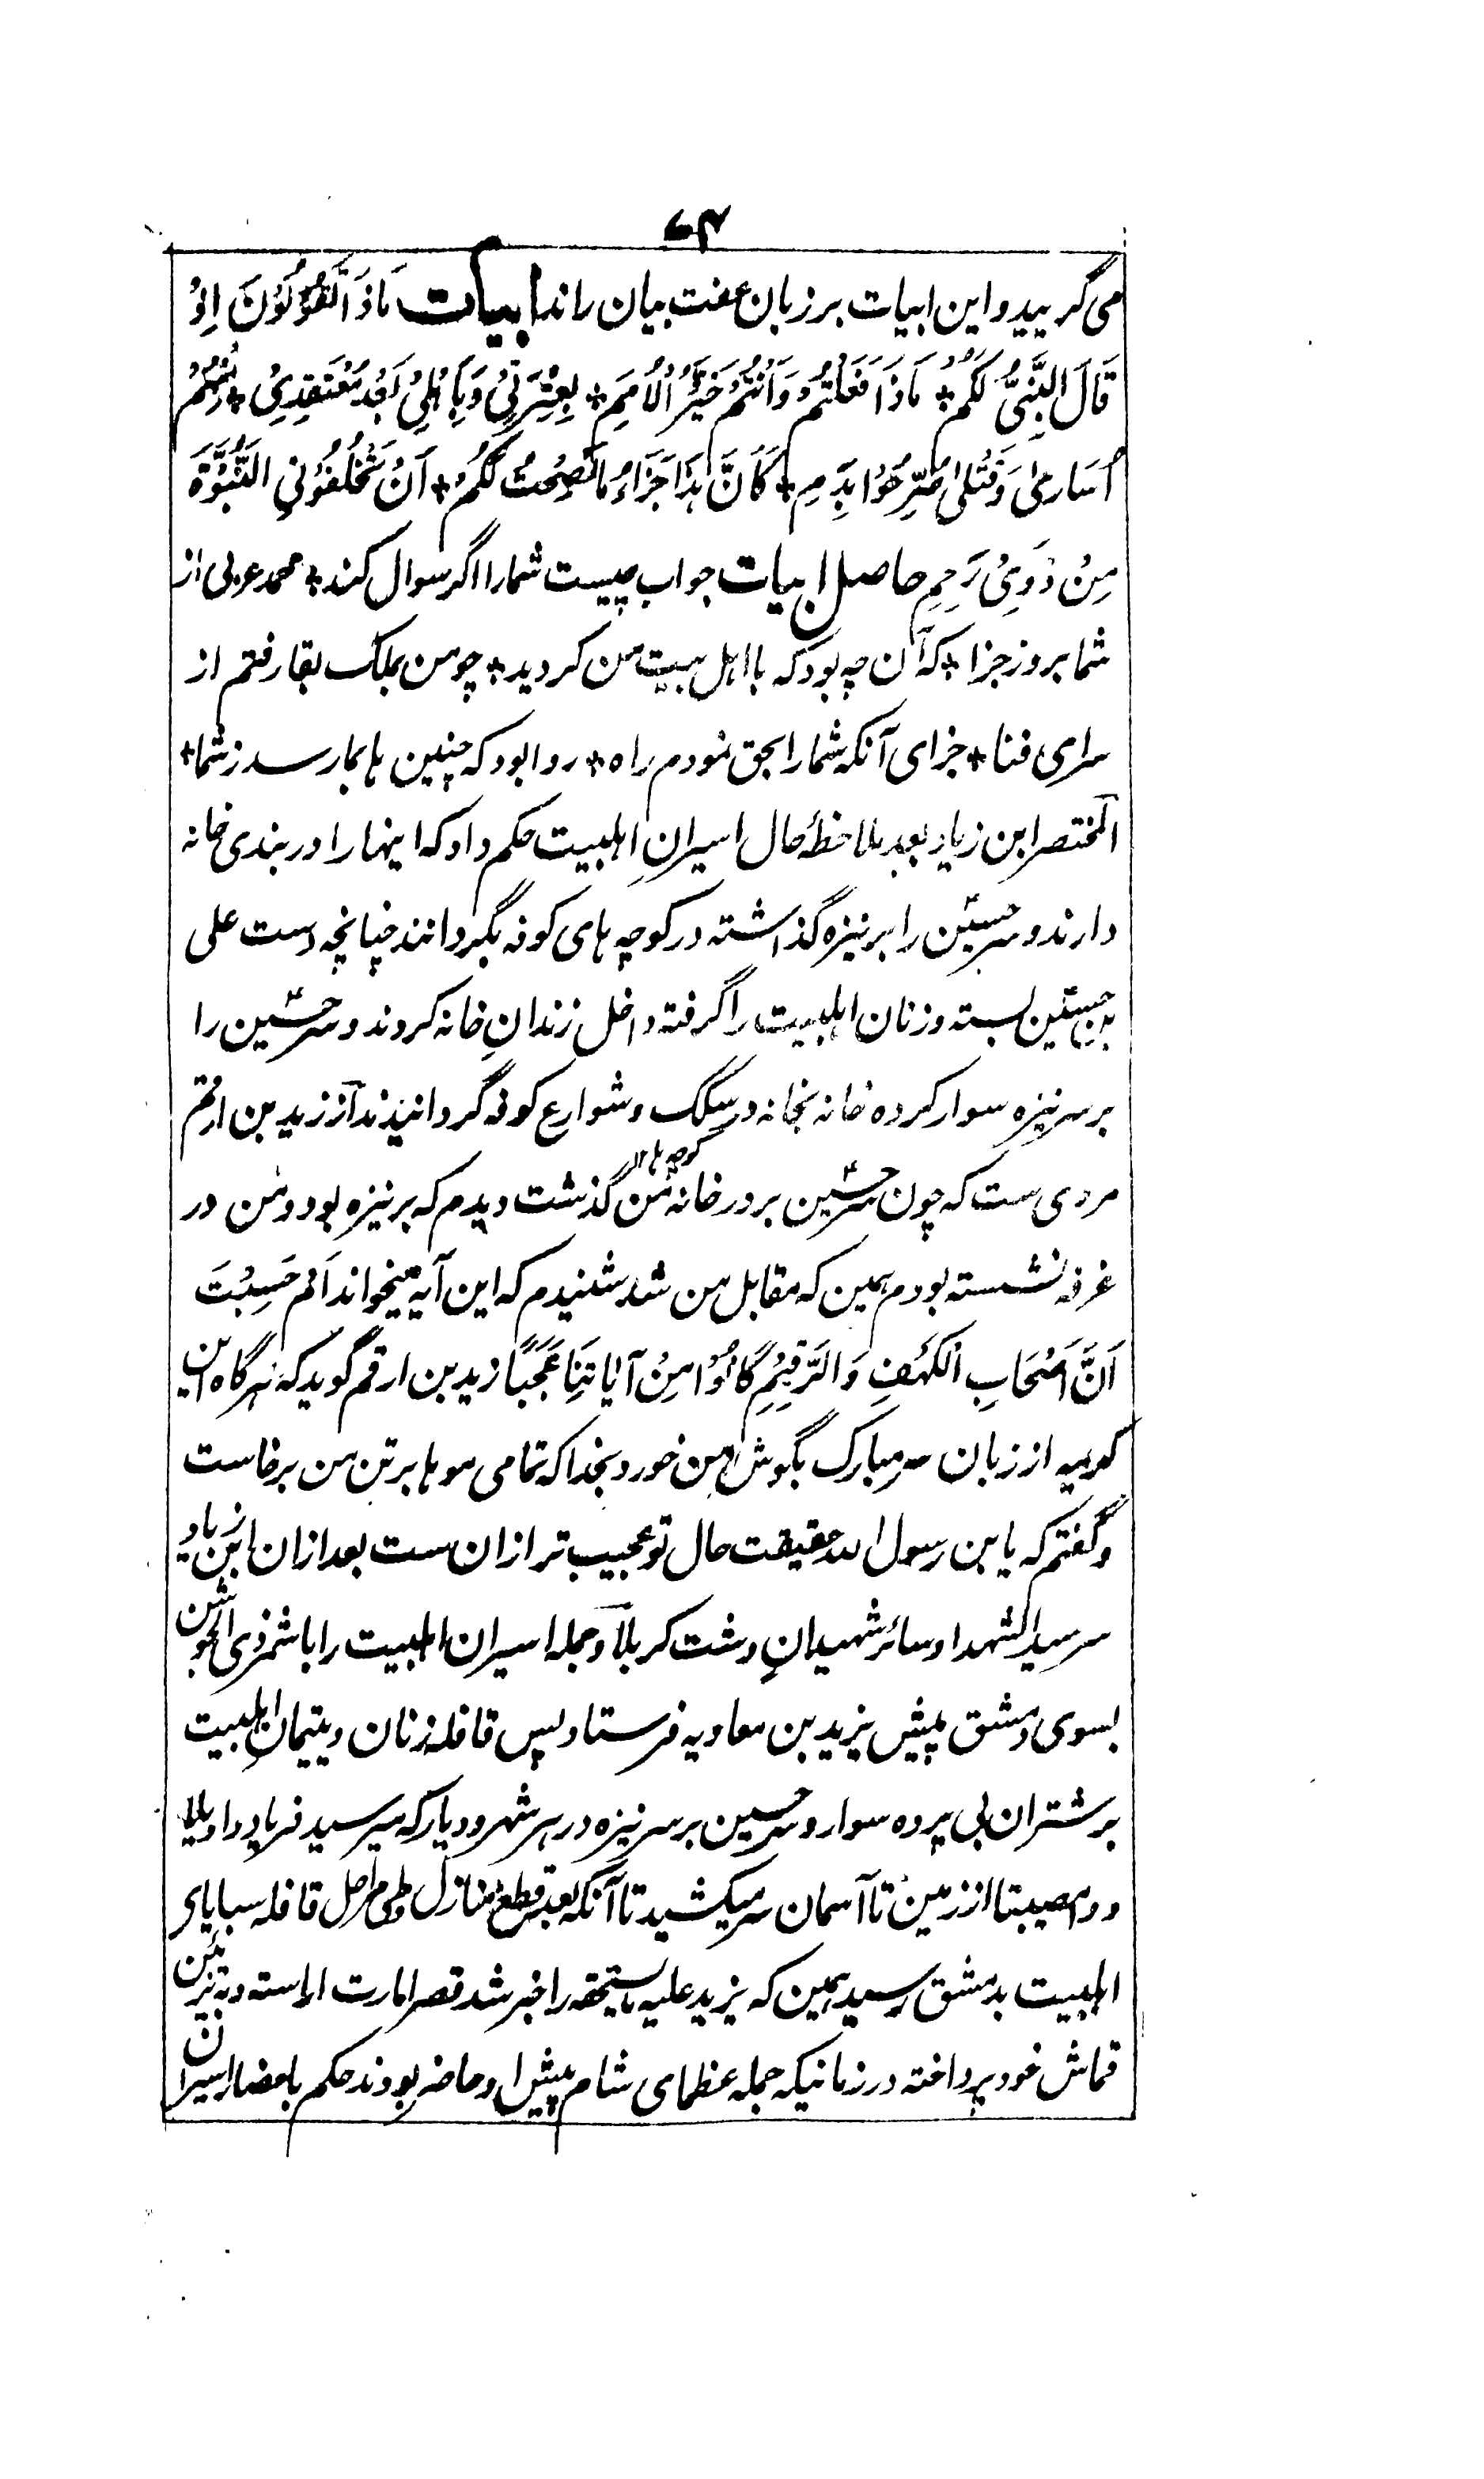 ۷۳
می گریید و این ابیات بر زبان عفت بیان راند ابیات مَاذَا تَقُوْلُوْنَ اِذْ
قَالَ النَّبِیُّ لَکُمْ * مَاذَا فَعَلْتُمْ وَاَنْتُمْ خَیْرُ الْاُمَمِ * بِعِتْرَتِیْ وَبِاَهْلِیْ بَعْدَ مُفْتَقَدِیْ * مِنْهُمْ
اُسَارٰی وَقَتْلٰی ضُرِّجُوْا بِدَمِ * کَانَ هٰذَا جَزَاءُ مَا نَصَحْتُ لَکُمْ * اَنْ تَخْلُفُوْنِی
مِنْ ذَوِیْ رَحِمِ حاصل ابیات جواب چیست شما را اگر سوال کند * محمد عربی از
شما بروز جزا * که آن چه بود که با اهل بیت من کردید * چو من بملک بقا رفتم از
سرای فنا * جزای آنکه شما را بحق نمودم راه * روا بود که چنین ها بما رسد ز شما *
المختصر ابن زیاد بعد ملاحظهٔ حال اسیران اهلبیت حکم داد که اینها را در بندی خانه
دارند و سر حسین را بر نیزه گذاشته در کوچه های کوفه بگردانند چنانچه دست علی
بسته و زنان اهلبیت را گرفته داخل زندان خانه کردند و سر حسین را
بر سر نیزه سوار کرده خانه بخانه در سکک و شوارع کوفه گردانیدند از زید بن ارقم
کوچه ها ۱۲
مروی ست که چون سر حسین بر در خانه من گذشت دیدم که بر نیزه بود و من در
غرفه نشسته بودم همین که مقابل من شد شنیدم که این آیه میخواند اَمْ حَسِبْتَ
اَنَّ اَصْحَابَ الْکَهْفِ وَالرَّقِیْمِ کَانُوْا مِنْ آیَاتِنَا عَجَبًا زید بن ارقم گوید که هرگاه این
کریمه از زبان سر مبارک بگوش من خورد بخدا که تمامی موها بر تن من برخاست
و گفتم که یا بن رسول الله حقیقت حال تو عجیب تر ازان ست بعد ازان ابن زیاد
سر سید الشهدا و سائر شهیدان دشت کربلا و جمله اسیران اهلبیت را با شمر ذی الجوشن
بسوی دمشق پیش یزید بن معاویه فرستاد پس قافله زنان و یتیمان اهلبیت
بر شتران بی پرده سوار و سر حسین بر سر نیزه در هر شهر و دیار که میرسید فریاد واویلا
و وامصیبتا از زمین تا آسمان سر میکشید تا آنکه بعد قطع منازل و طی مراحل قافله سبایای
اهلبیت بدمشق رسید همین که یزید علیه ما یستحقه را خبر شد قصر امارت آراسته و بتزئین
قماش خود پرداخته در زمانیکه جمله عظمای شام پیش او حاضر بودند حکم باحضار اسیران